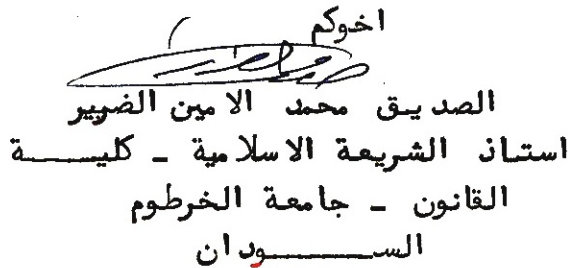 اخوكم
الصديق محمد الامين الضرير
استاذ الشريعة الاسلامية - كلية
القانون - جامعة الخرطوم
السودان